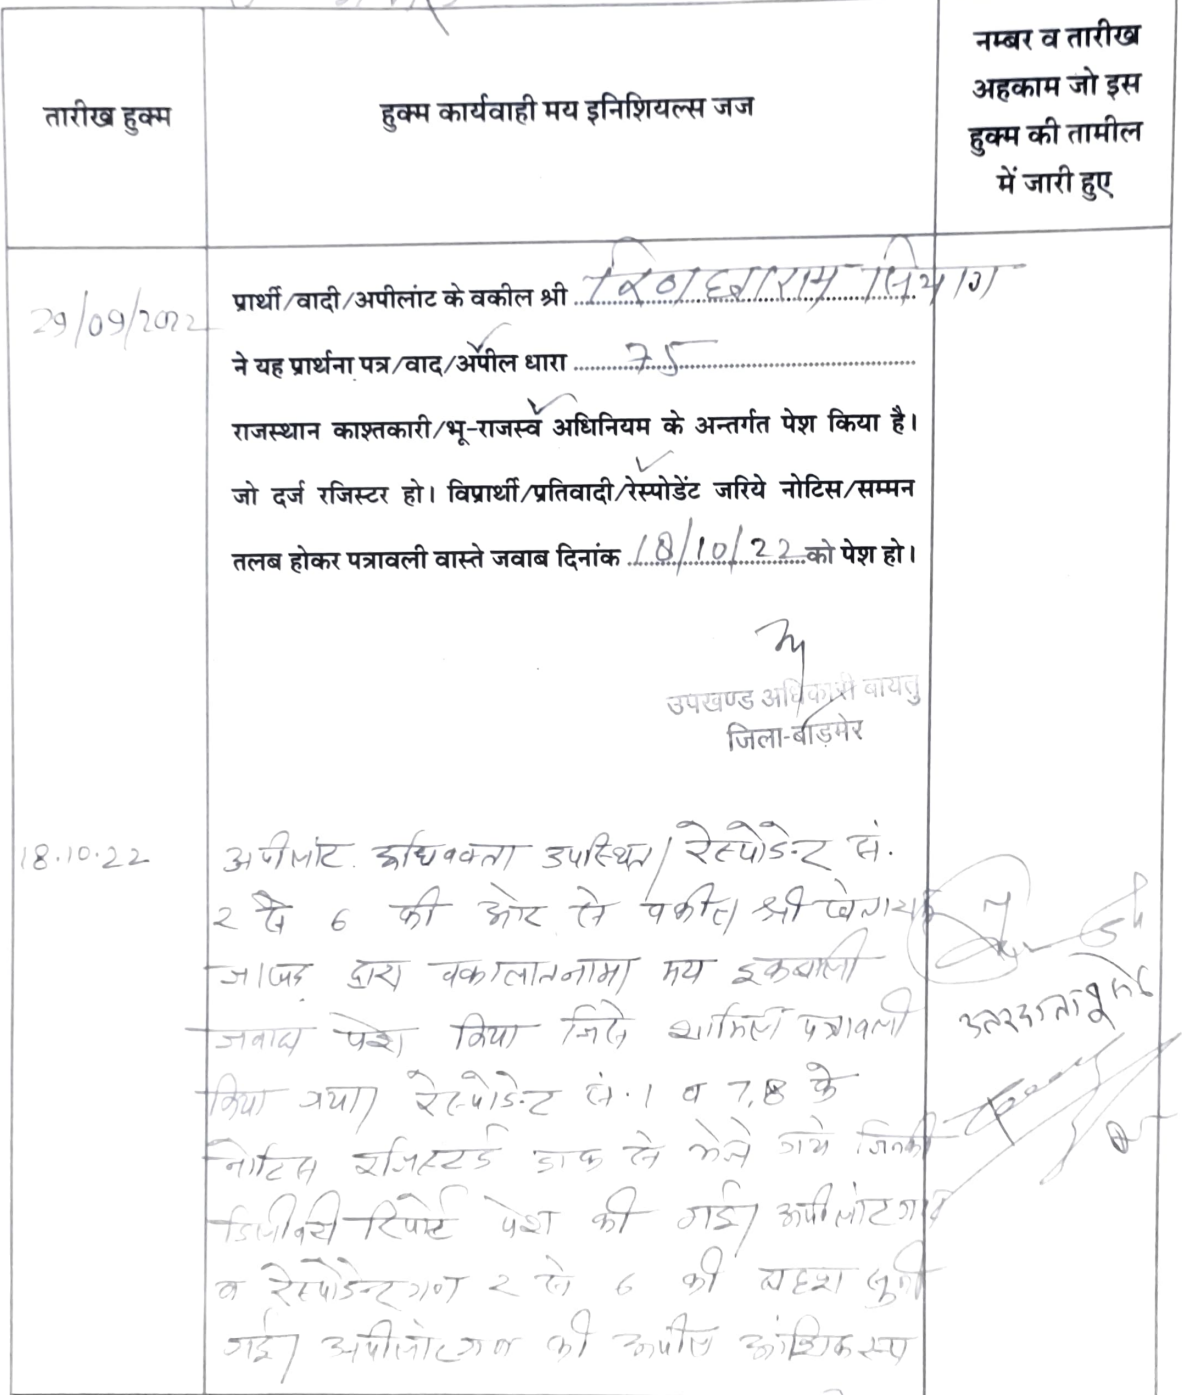 तारीख हुक्म
हुक्म कार्यवाही मय इनिशियल्स जज
नम्बर व तारीख
अहकाम जो इस
हुक्म की तामील
में जारी हुए
29/09/2022
प्रार्थी/वादी/अपीलांट के वकील श्री ..... सियाग
ने यह प्रार्थना पत्र/वाद/अपील धारा ..... 75 .....
राजस्थान काश्तकारी/भू-राजस्व अधिनियम के अन्तर्गत पेश किया है।
जो दर्ज रजिस्टर हो। विप्रार्थी/प्रतिवादी/रेस्पोडेंट जरिये नोटिस/सम्मन
तलब होकर पत्रावली वास्ते जवाब दिनांक 18/10/22 को पेश हो।
उपखण्ड अधिकारी बायतु
जिला-बाड़मेर
18.10.22
अपीलांट अधिवक्ता उपस्थित। रेस्पोडेन्ट सं.
2 से 6 की ओर से वकील श्री
द्वारा वकालातनामा मय इकबाली
जवाब पेश किया जिसे शामिल पत्रावली
किया गया। रेस्पोडेन्ट सं. 1 व 7,8 के
नोटिस रजिस्टर्ड डाक से भेजे गये जिनकी
डिलीवरी रिपोर्ट पेश की गई। अपीलांटगण
व रेस्पोडेन्टगण 2 से 6 की बहस सुनी
गई। अपीलांटगण की अपील आंशिक रूप